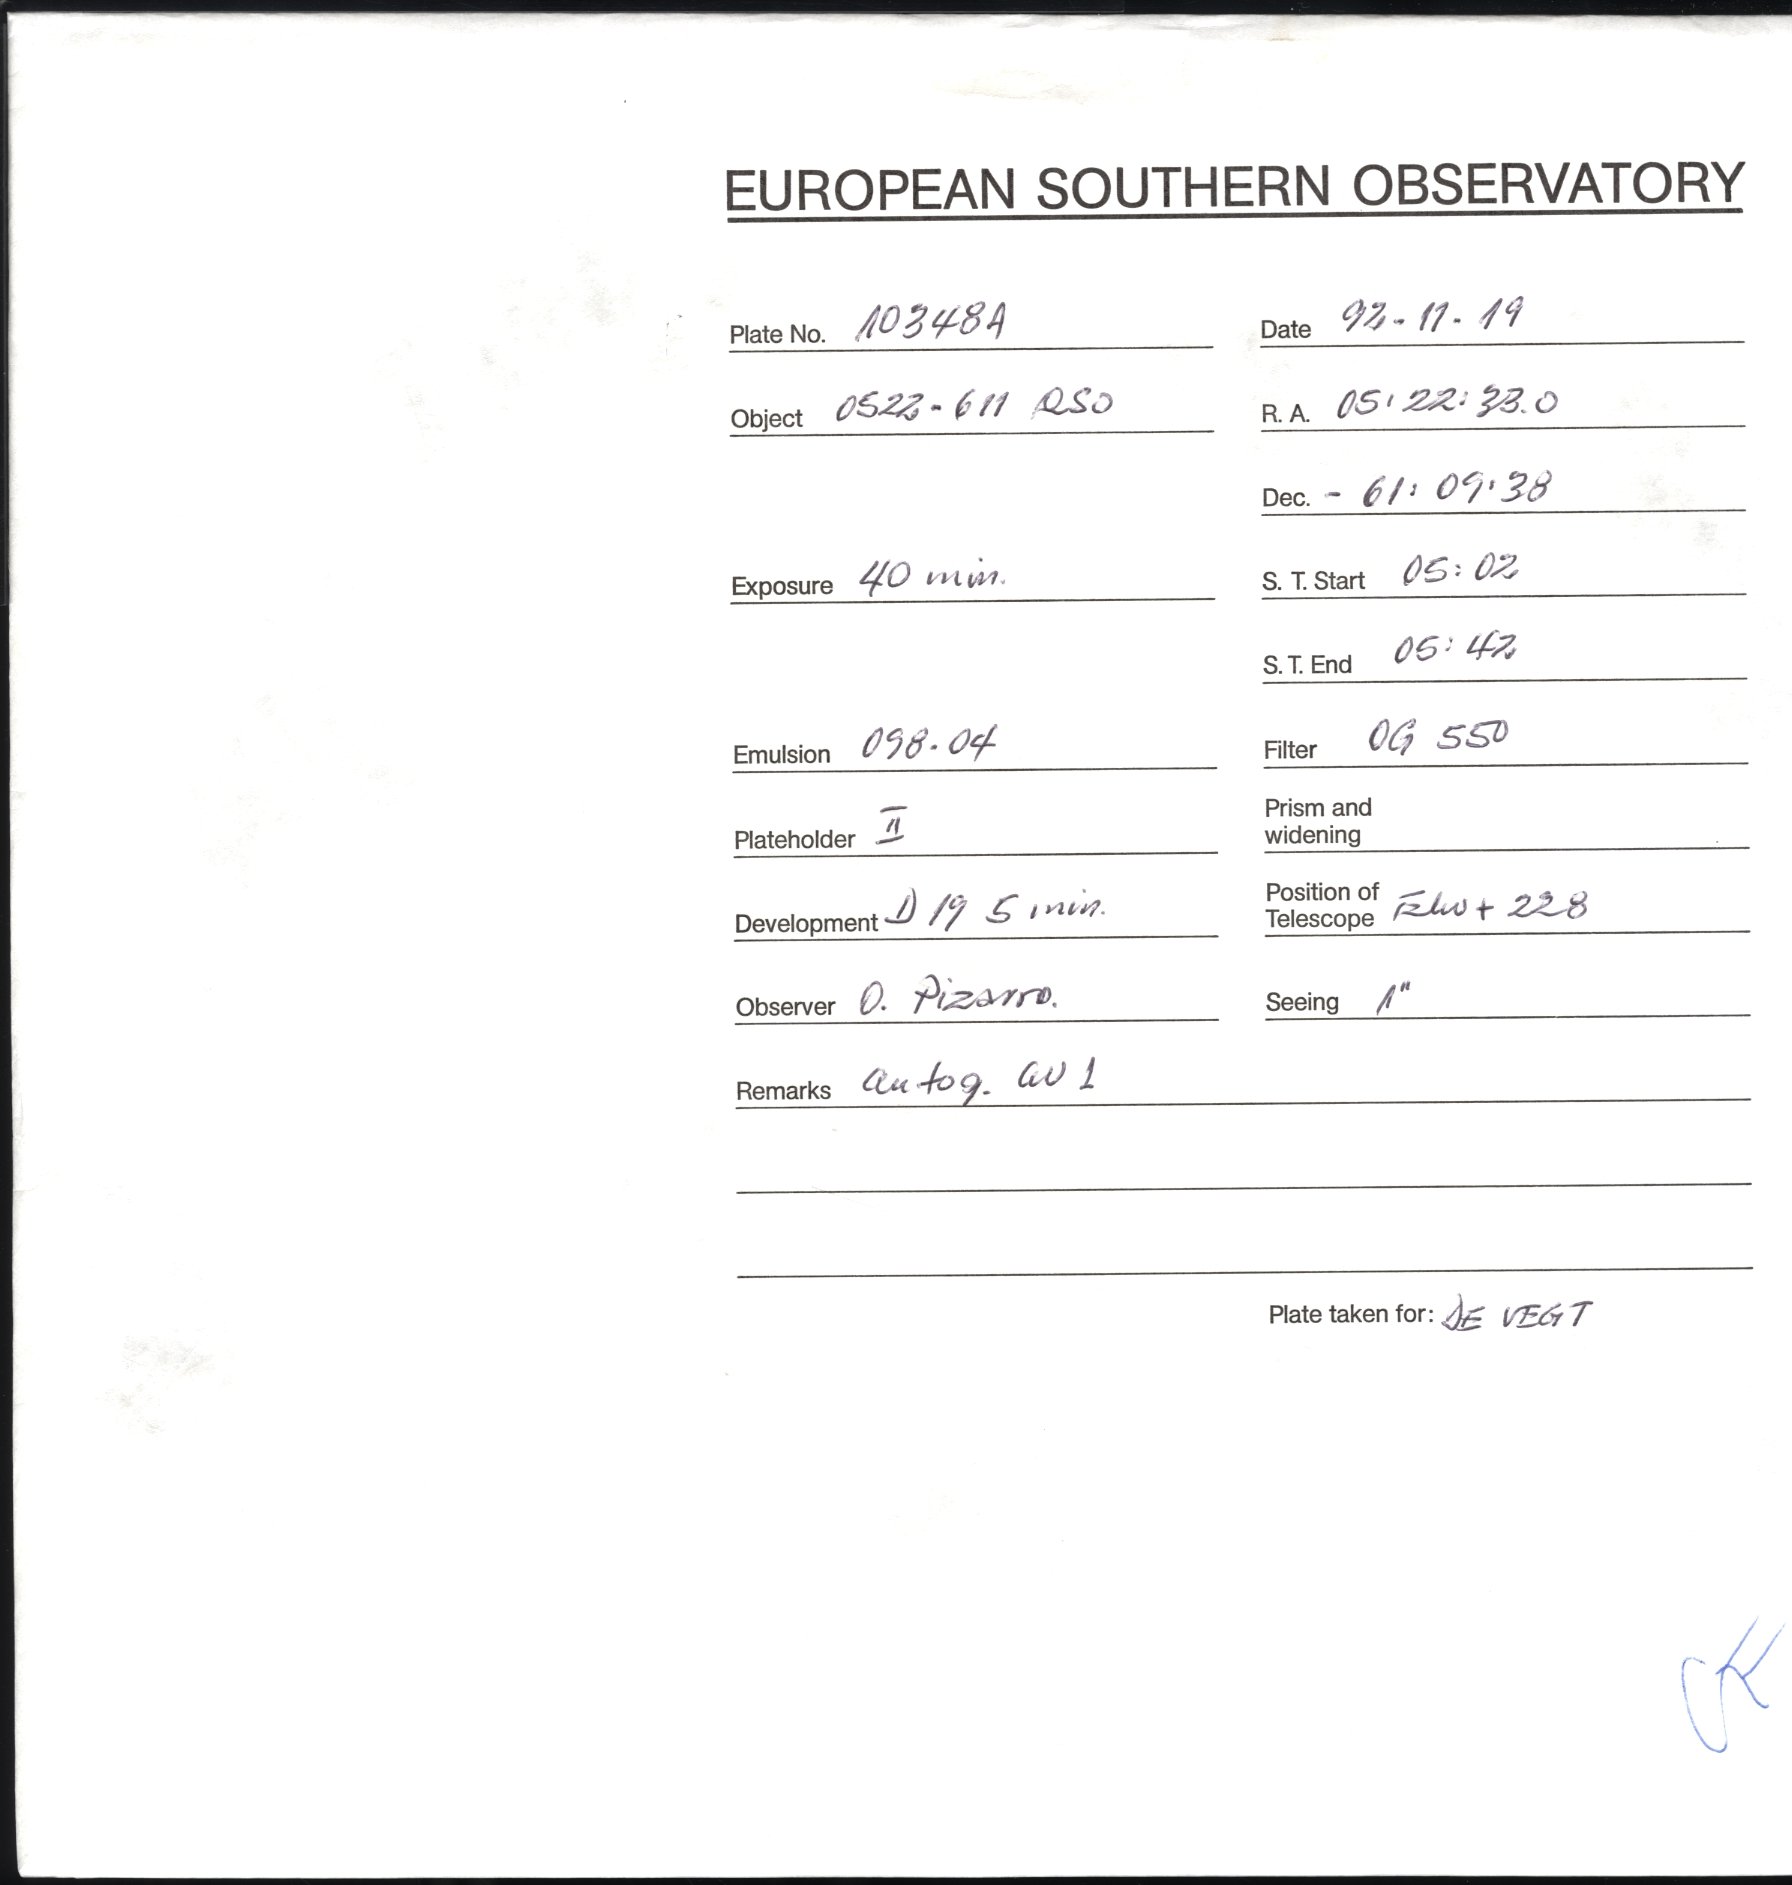 EUROPEAN SOUTHERN OBSERVATORY
Plate No. 10348A Date 92-11-19
Object 0522-611 QSO R. A. 05:22:33.0
Dec. - 61:09:38
Exposure 40 min. S. T. Start 05:02
S. T. End 05:42
Emulsion 098-04 Filter OG 550
Plateholder II Prism and widening
Development D 19 5 min. Position of Telescope + 228
Observer O. Pizarro. Seeing 1"
Remarks autog. 1
Plate taken for: DE VEGT